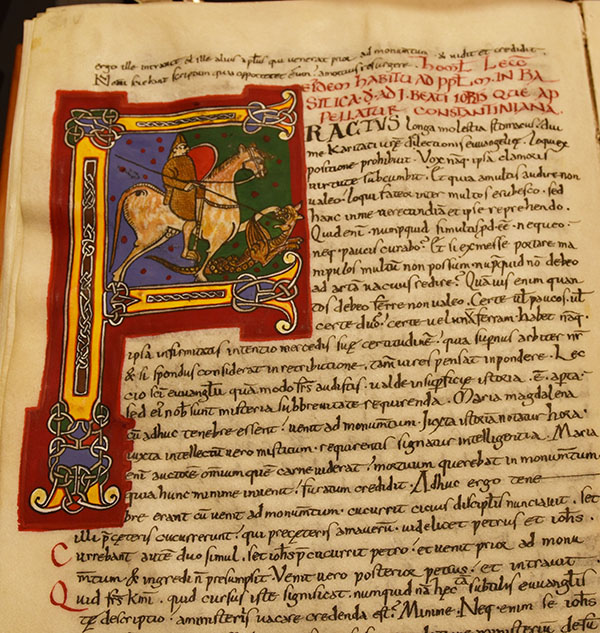 ergo ille introiuit et ille alius aplus qui uenerat prior ad monumentum & uidit et credidit
Non sciebant scripturam quia oporteret eum a mortuis resurgere. hom Lec
eidem habitu ad ppl m in ba
silica d ad i beati iohis que ap
pellatur constantiniana.
FRACTUS longa molestia stomacus diu
me karitati ure dilectionis euuangelice loqui ex
positione prohibuit. Vox naq ipsa clamoris
uirtute subcumbit. Et quia amultis audire non
ualeo. loqui fateor inter multos erubesco. sed
hanc in me uerecundia et ipse reprehendo.
Quid eni nunquid simultis pdee nequeo.
neq paucis curabo? Et si ex messe portare ma
nipulos multum non possum. nunquid non debeo
ad area uacuus redire? Quauis enim quan
tos debeo ferre non ualeo. Certe ul paucos. ul
certe duos. certe uel unu ferram. habet naq
ipsa infirmitatis intentio mercedis sue certitudine. quia supnus arbiter nr
& si pondus considerat in retributione. tam uires pensat in pondere. Lec
cio sci euuanglii qua modo frs audistis. ualde in supficie istoria e aperta.
sed ei nob sunt misteria sub breuitate requirenda. Maria magdalena
cu adhuc tenebre essent. uenit ad monumtum. Iuxta istoria notatur hora.
iuxta intellectu uero misticum requirentis signatur intelligentia. Maria
eni auctore omnium que carne uiderat mortuum querebat in monumentum.
& quia hunc minime inuenit furatum credidit. Adhuc ergo tene
bre erant cu uenit ad monumtum. cucurrit cicius discipulis nunciauit. set
illi pceteris cucurrerunt qui preceteris amauerunt. uidelicet petrus et iohs.
Currebant aute duo simul. set iohs pcucurrit petro. et uenit prior ad monu
mtum & ingredi n presumpsit. Venit uero posterior petrus. et intrauit
Quid frs kmi. quid cursus iste significat. nunquid na hec ta subtilis euuangelis
te descriptio. a misteriis uacare credenda est? Minime. Neq enim se iohs